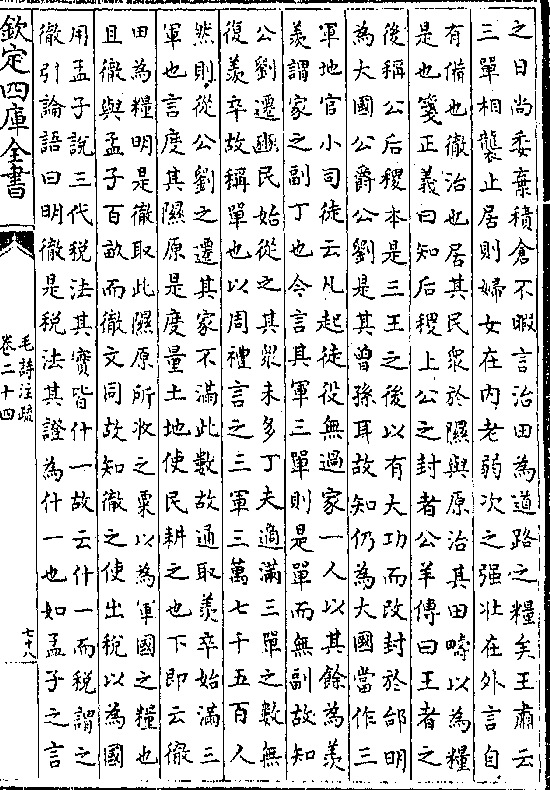 之日尚委棄積倉不暇言治田為道路之糧矣王肅云
三單相襲止居則婦女在内老弱次之强壯在外言自
有備也徹治也居其民衆於隰與原治其田疇以為糧
是也箋正義曰知后稷上公之封者公羊傳曰王者之
後稱公后稷本是三王之後以有大功而改封於邰明
為大國公爵公劉是其曾孫耳故知仍為大國當作三
軍地官小司徒云凡起徒役無過家一人以其餘為羡
羡謂家之副丁也今言其軍三單則是單而無副故知
公劉遷豳民始從之其衆未多丁夫適滿三單之數無
復羡卒故稱單也以周禮言之三軍三萬七千五百人
然則從公劉之遷其家不滿此數故通取羡卒始滿三
軍也言度其隰原是度量土地使民耕之也下即云徹
田為糧明是徹取此隰原所收之粟以為軍國之糧也
且徹與孟子百畝而徹文同故知徹之使出稅以為國
用孟子說三代稅法其實皆什一故云什一而稅謂之
徹引論語曰明徹是稅法其證為什一也如孟子之言
欽定四庫全書
毛詩注疏
卷二十四
七十八